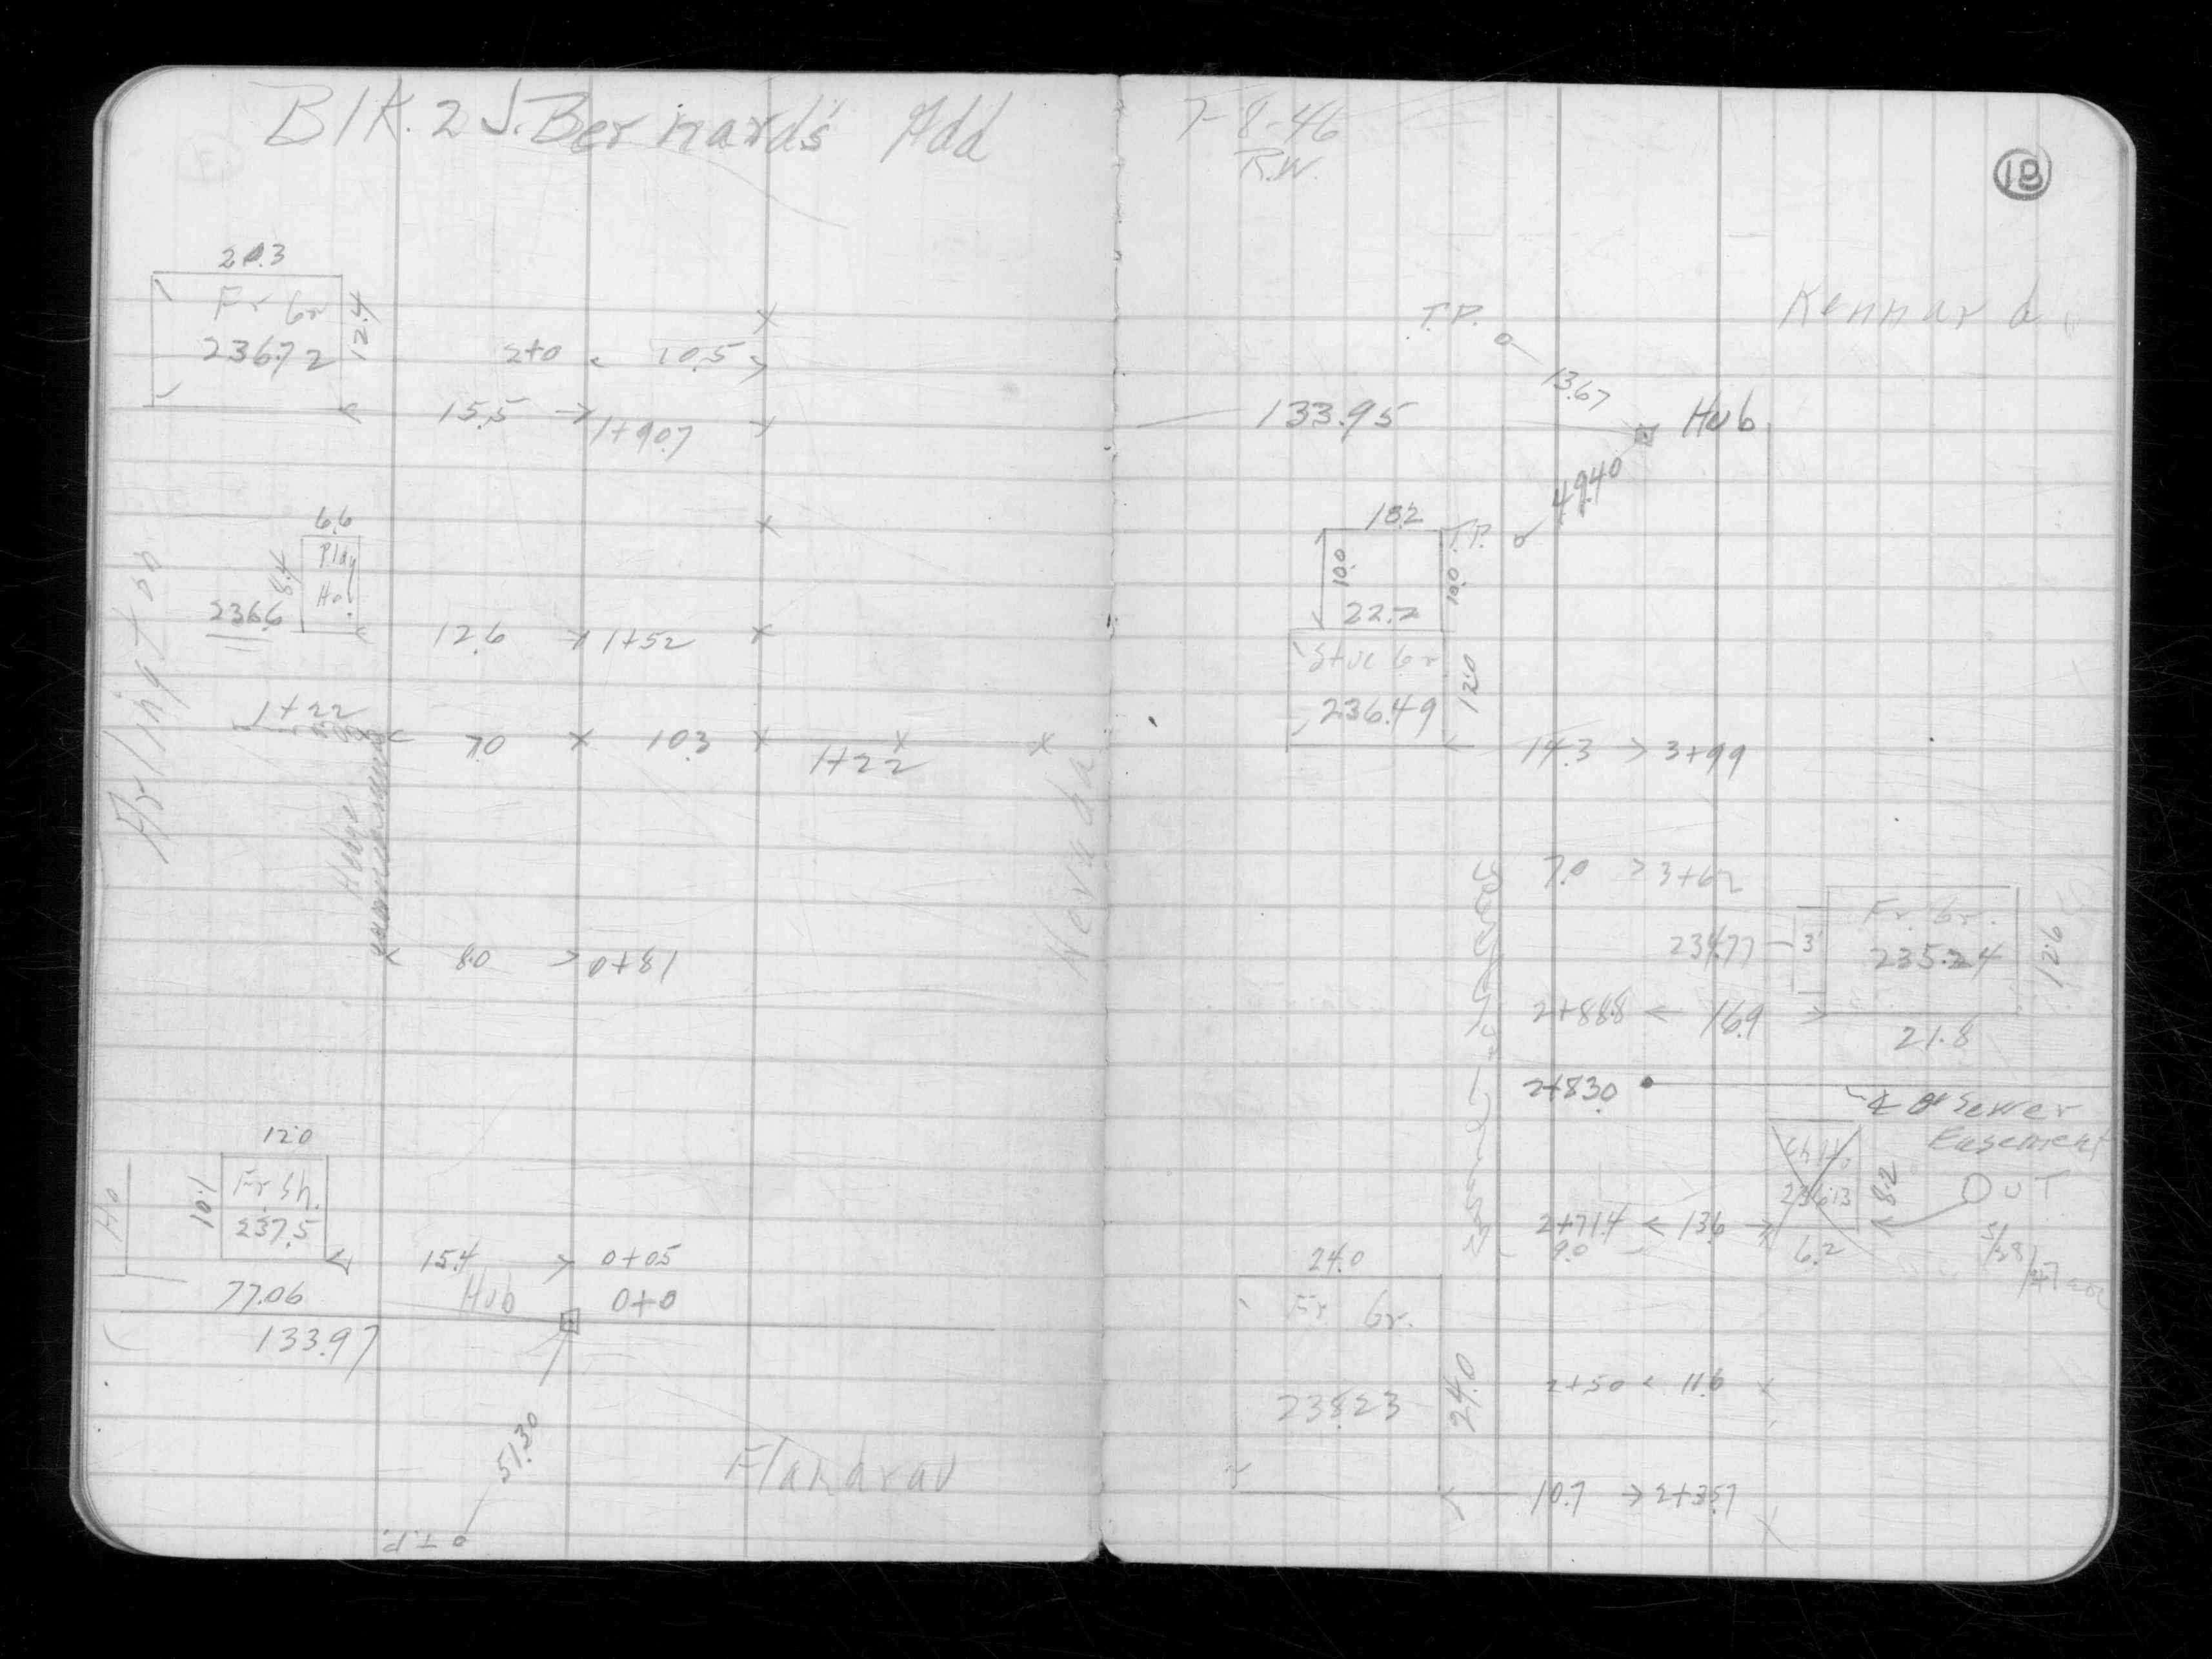 Blk. 2 J. Bernard's Add
20.3
Fr Gr
236.72
12.4
2+0 10.5
15.5 1+90.7
6.6
Play
Ho.
8.4
236.6
12.6 1+52
Arlington
1+22
7.0 10.3
1+22
Hedge
Nevada
8.0 0+81
12.0
Fr Sh.
237.5
10.1
Ho
15.4 0+05
77.06 Hub 0+0
133.97
51.30
T.P.
7-8-46
R.W.
18
Kennard
T.P.
13.67
133.95 Hub
49.40
T.P.
18.2
10.0
10.0
22.7
Stuc Gr
236.49
12.0
14.3 3+99
7.0 3+62
Fr. Gr.
235.24
12.6
234.77 3'
2+88.8 16.9
21.8
2+83.0
℄ of Sewer
Easement
Ch Ho
236.13
8.2
OUT
5/28/47
2+71.4 13.6
9.0
6.2
24.0
Fr Gr.
238.23
24.0
2+50 11.6
10.7 2+35.7